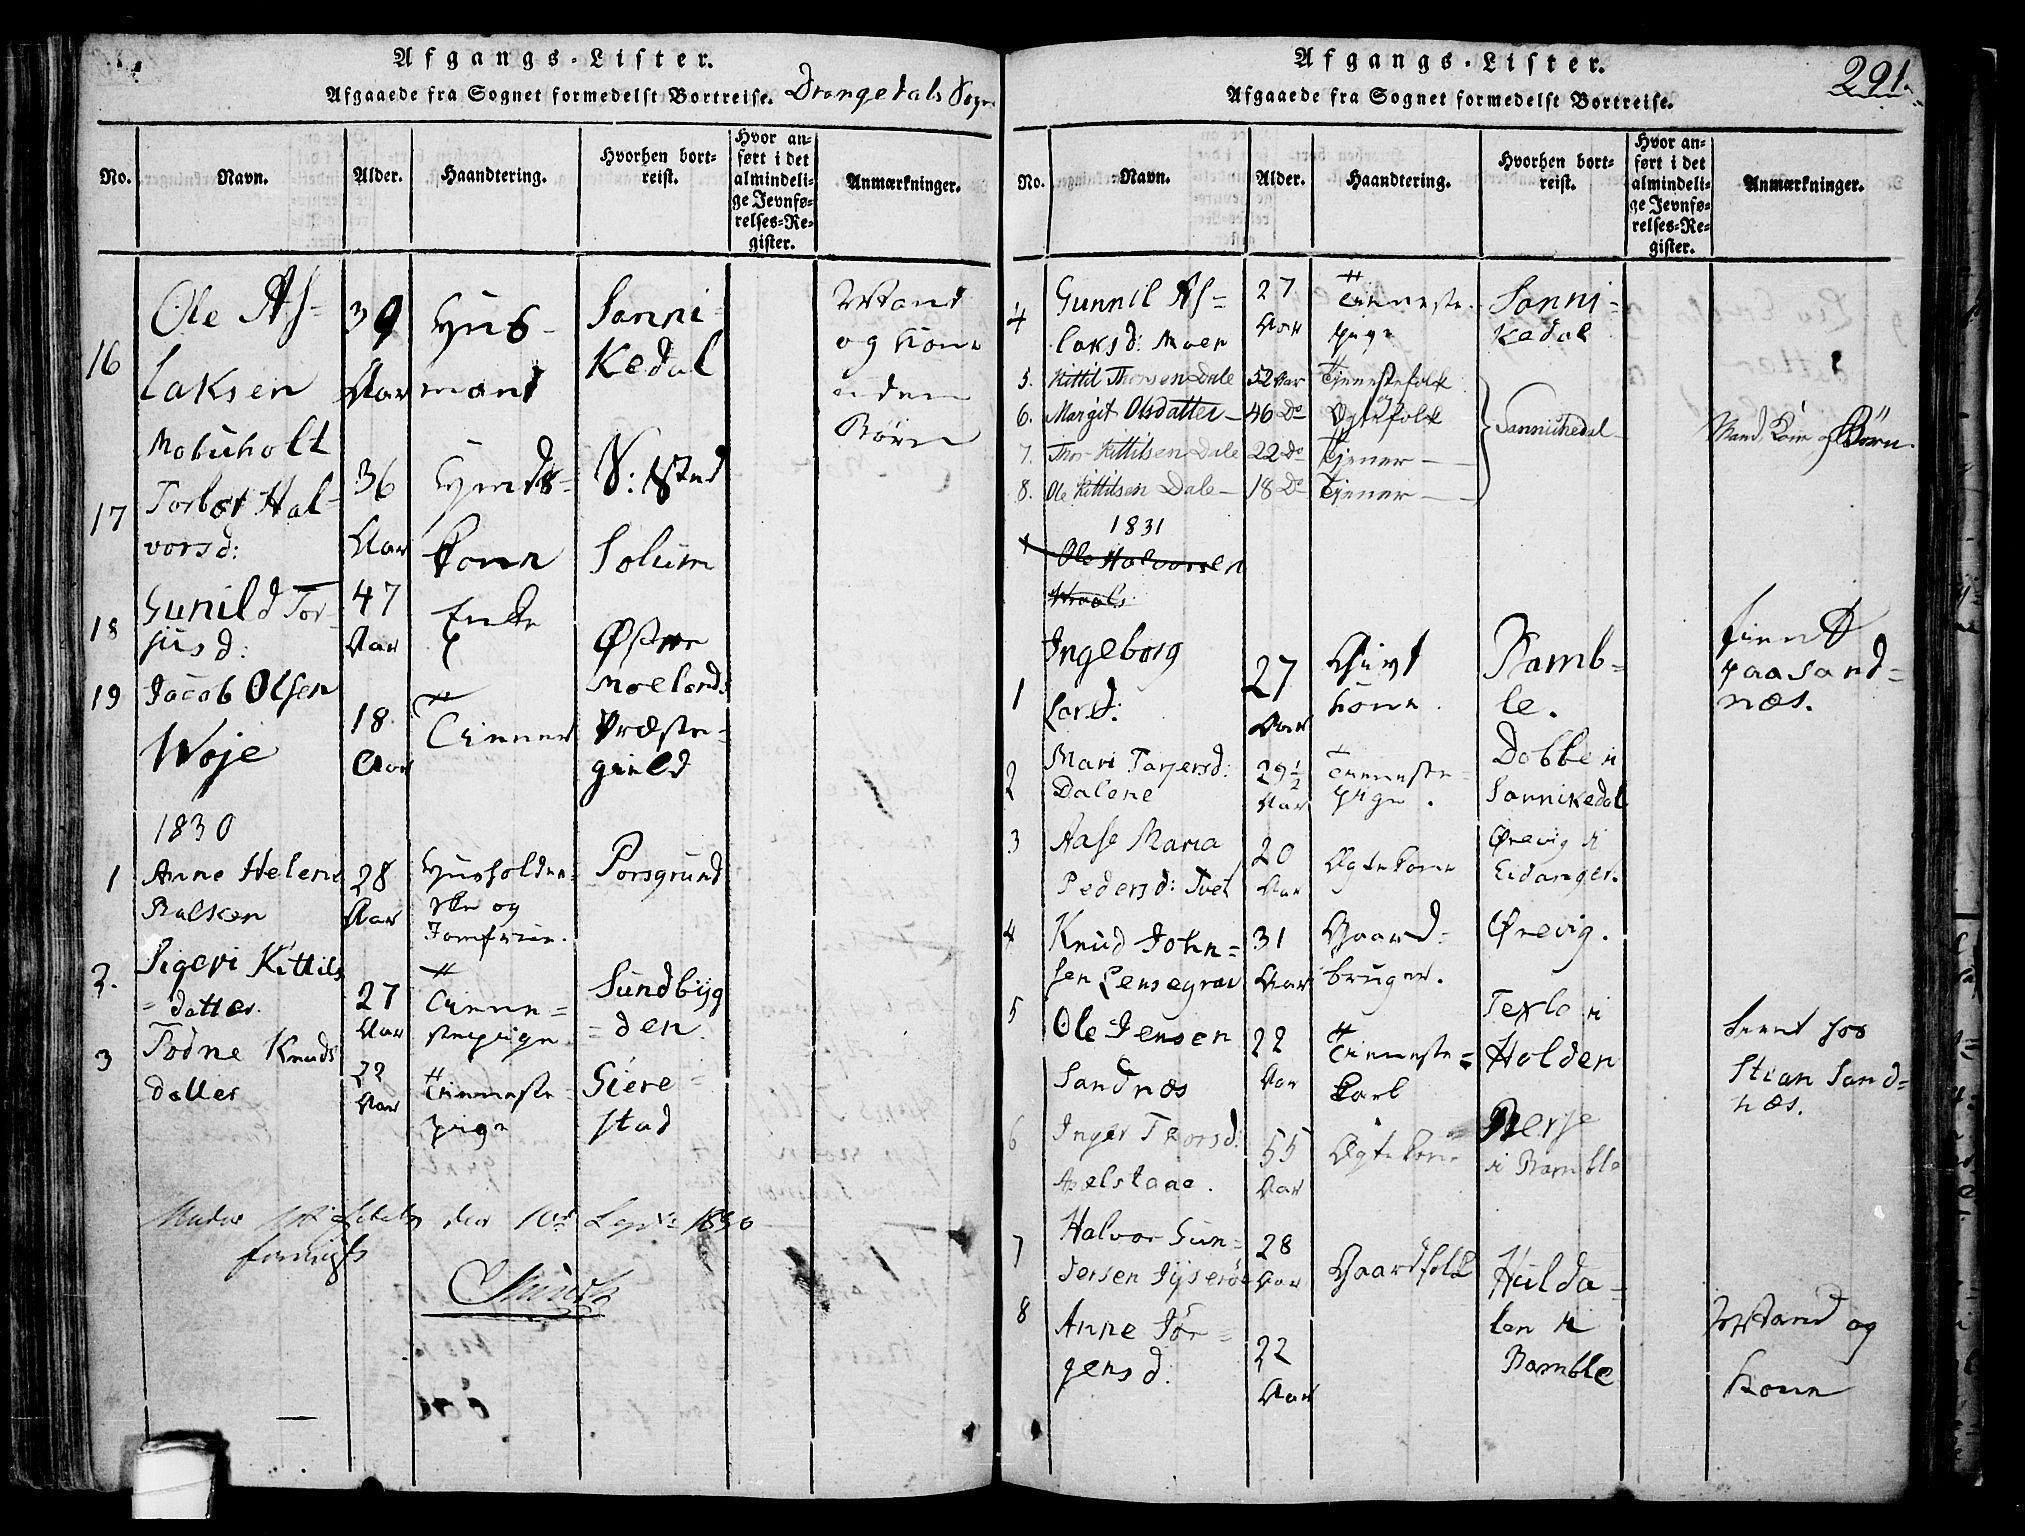 Afgangs-Lister.
Afgaaede fra Sognet formedelst Bortreise. Drangedals Sogn
No.
Navn.
Alder.
Haandtering.
Hvorhen bort-
reist.
Hvor an-
ført i det
almindeli-
ge Jevnfø-
relses-Re-
gister.
Anmærkninger.
16
Ole As-
laksen
Moluholt
39
Aar
Hus-
mand
Sanni-
kedal
Mand
og Kone
uden
Børn
17
Torbør Hal-
vorsd:
36
Aar
Kone
Solum
18
Gunild Tor-
jusd:
47
Aar
Enke
Østre
Moelands
Præste-
gield
19
Jacob Olsen
Woje
18
Aar
Tienner
1830
1
Anne Helene
Balsken
28
Aar
Husholder-
ske og
Jomfrue.
Porsgrund
2.
Sigeri Kittils
=datter.
27
Aar
Tienne=
stepige
Sundbyg
=den
3
Todne Knuds
datter
22
Aar
Tienneste-
pige
Giere-
stad
den 10de Septr 1830
Afgangs-Lister.
291.
Afgaaede fra Sognet formedelst Bortreise.
No.
Navn.
Alder.
Haandtering.
Hvorhen bort-
reist.
Hvor an-
ført i det
almindeli-
ge Jevnfø-
relses-Re-
gister.
Anmærkninger.
4
Gunnil As=
laksd: Moen
27
Aar
Tienneste-
pige
Sanni-
kedal
5. Kittil Thorsen Dale 52 Aar Tjenestefolk
6. Margit Olsdatter- 46 Do Ægtefolk
Sannikedal
Mand, Kone og Børn.
7. Thor Kittilsen Dale 22 Do Tjener
8. Ole Kittilsen Dale- 18 Do Tjener
1831
1
Ole Halvorsen
1
Ingeborg
Larsd:
27
Aar
Givt
Kone.
Bamb-
le.
tient
paa Sand-
næs.
2
Mari Tarjersd:
Dalene
29½
Aar
Tienneste-
pige.
Dobbe i
Sannikedal
3
Aase Maria
Pedersd: Tvet
20
Aar
Ægtekone
Ørevig i
Eidanger.
4
Knud John=
sen Lensegrav
31
Aar
Gaard-
bruger.
Ørevig.
5
Ole Jensen
Sandnæs
22
Aar
Tienneste=
karl
Texlo i
Holden
tient hos
Stian Sand=
næs.
6
Inger Thorsd:
55
Aar
Ægtekone
i Bamble
7
Halvor Gun-
dersen
28
Aar
Gaardfolk
Hulda-
len i
Bamble
8
Anne Jør-
gensd.
22
Aar
Mand og
Kone